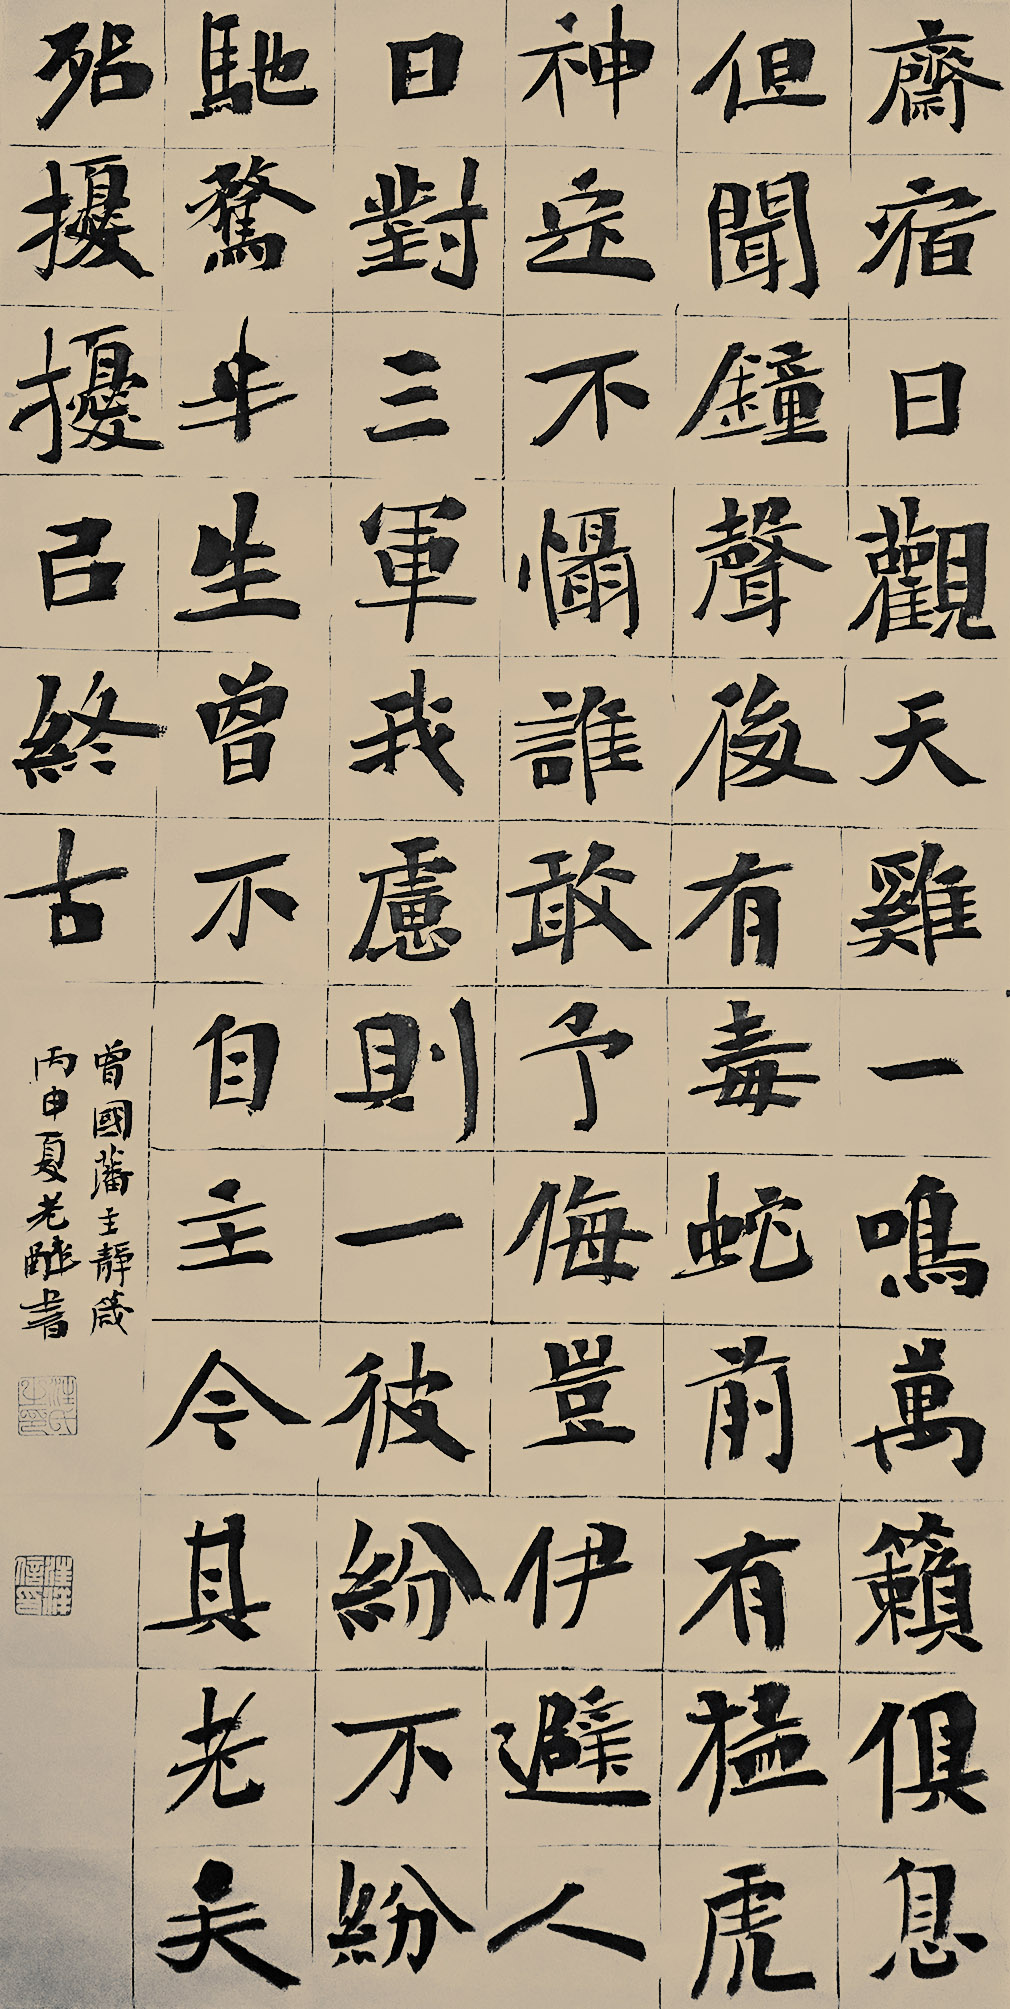 齋宿日觀天雞一鳴萬籟俱息
但聞鐘聲後有毒蛇前有猛虎
神定不懾誰敢予侮豈伊避人
日對三軍我慮則一彼紛不紛
馳騖半生曾不自主今其老矣
殆擾擾㠯終古
曾國藩主靜箴
丙申夏老書